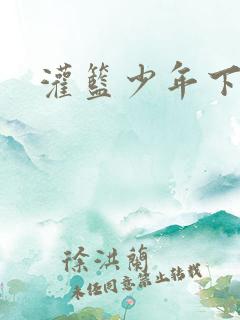 灌篮少年下
徐洪兰
未经同意禁止转载